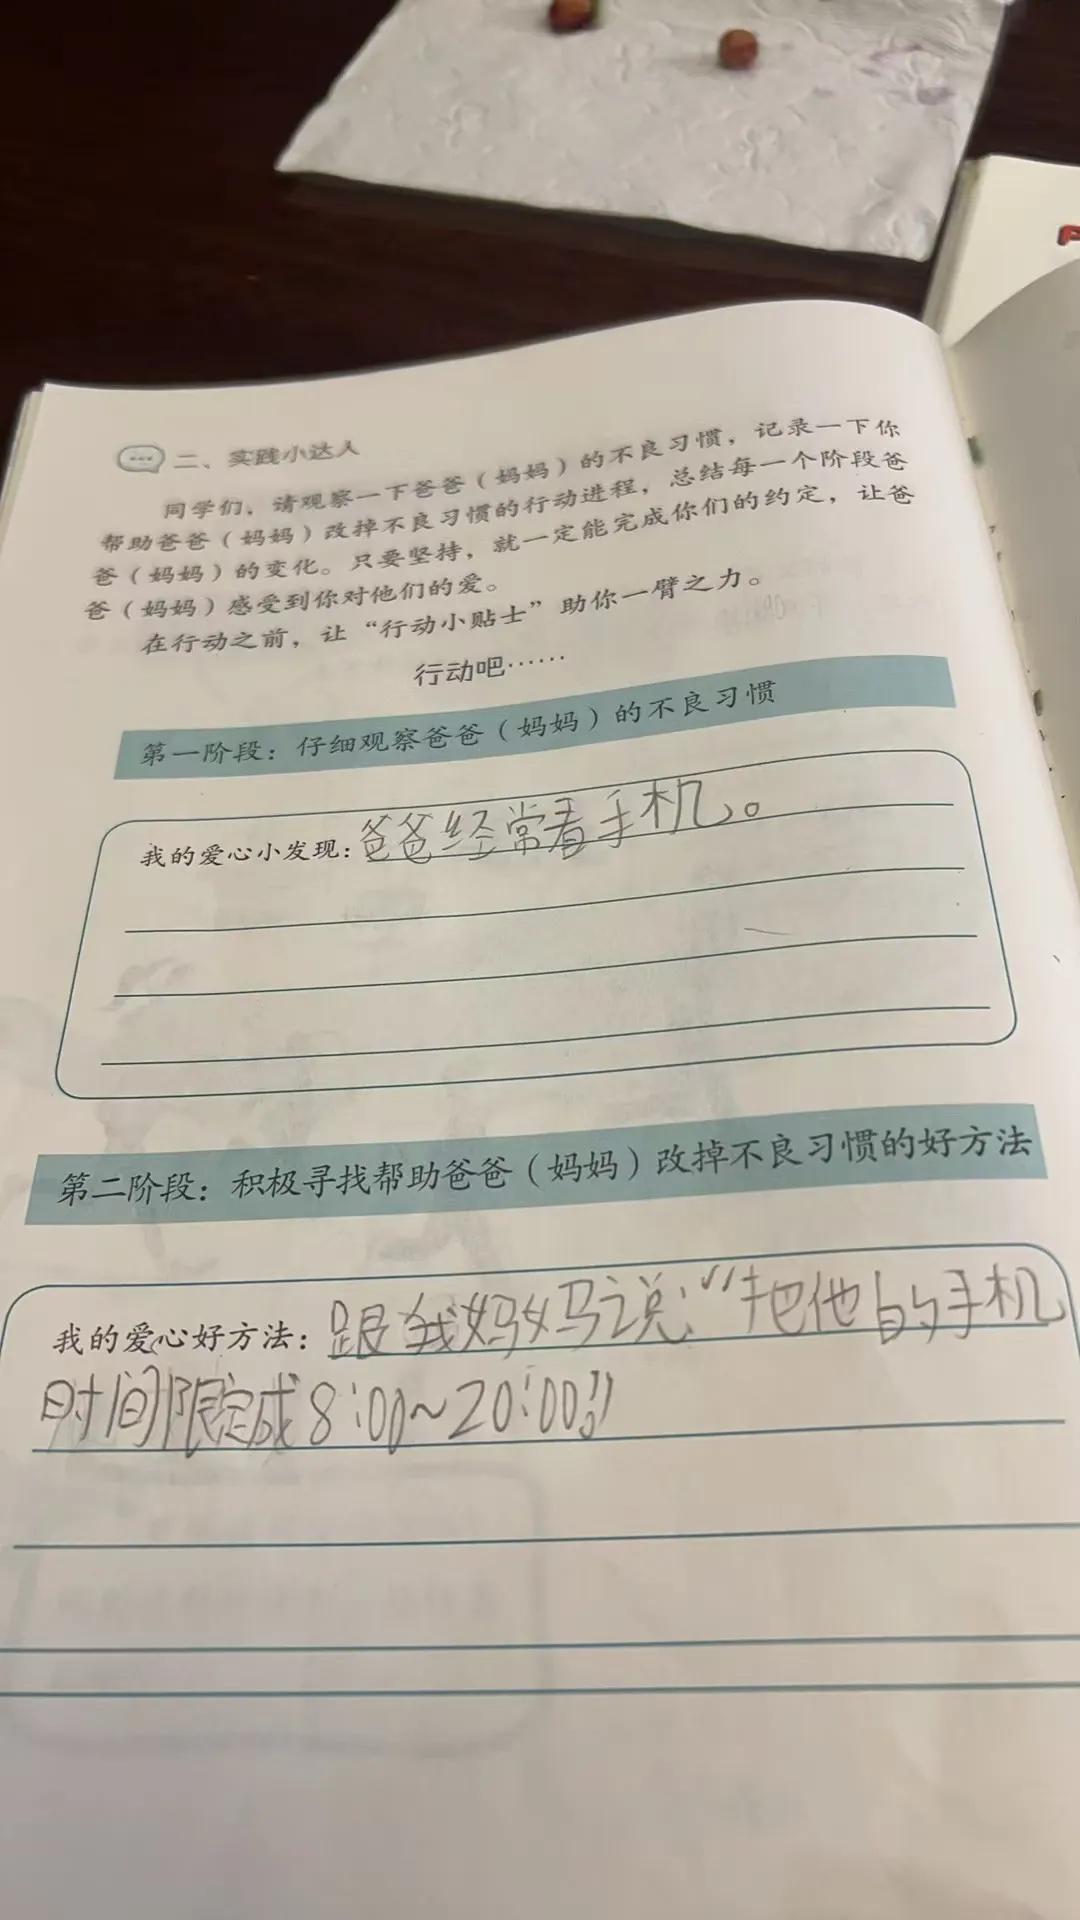 二、实践小达人
同学们，请观察一下爸爸（妈妈）的不良习惯，记录一下你
帮助爸爸（妈妈）改掉不良习惯的行动进程，总结每一个阶段爸
爸（妈妈）的变化。只要坚持，就一定能完成你们的约定，让爸
爸（妈妈）感受到你对他们的爱。
在行动之前，让“行动小贴士”助你一臂之力。
行动吧……
第一阶段：仔细观察爸爸（妈妈）的不良习惯
我的爱心小发现：爸爸经常看手机。
第二阶段：积极寻找帮助爸爸（妈妈）改掉不良习惯的好方法
我的爱心好方法：跟我妈妈说：“把他的手机
时间限定成8:00~20:00。”